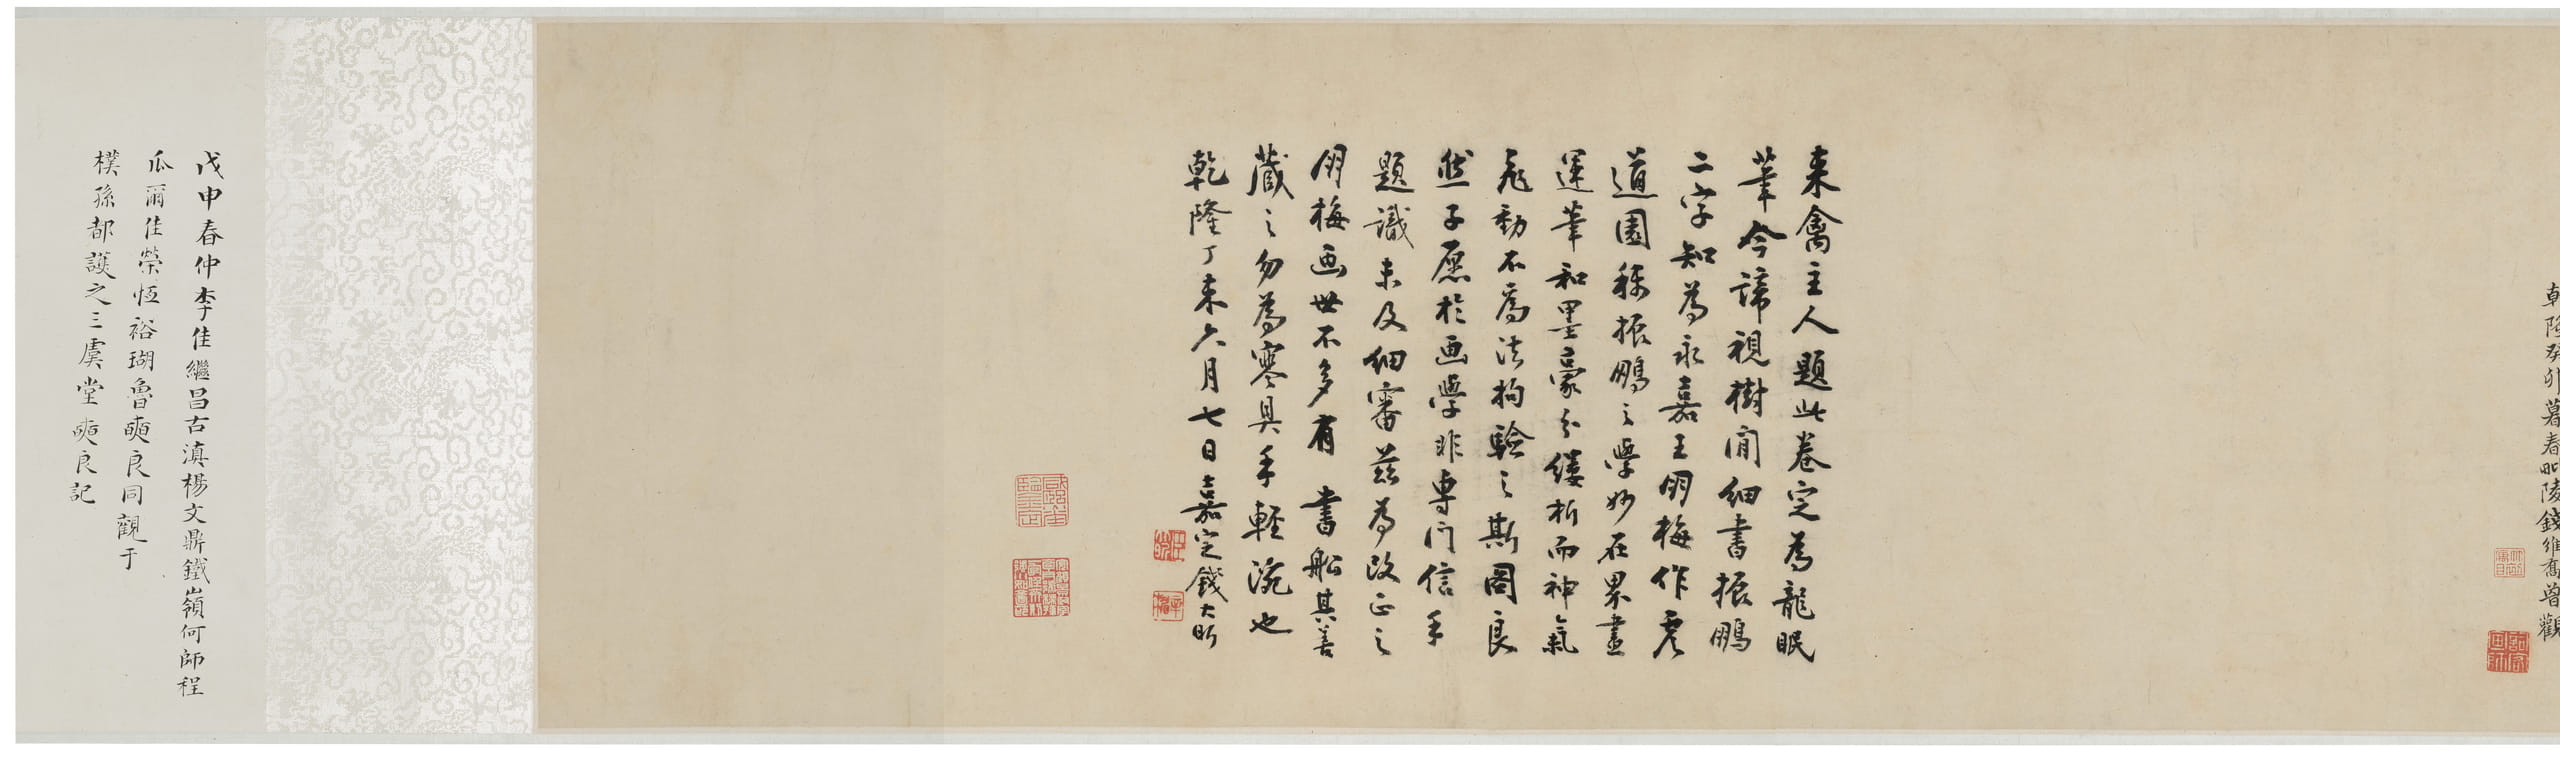 乾隆癸卯暮春毗陵錢維喬曾觀
來禽主人題此卷定為龍眠
筆今諦視樹間細書振鵬
二字知為永嘉王朋梅作虞
道園稱振鵬之學妙在界畫
運筆和墨毫分縷析而神氣
飛動不為法拘驗之斯圖良
然予愿於画學非專門信手
題識未及細審茲為改正之
朋梅画世不多有 書船其善
藏之勿為寒具手輕涴也
乾隆丁未六月七日嘉定錢大昕
戊申春仲李佳繼昌古滇楊文鼎鐵嶺何師程
瓜爾佳榮恆裕瑚魯奭良同觀于
樸孫都護之三虞堂奭良記